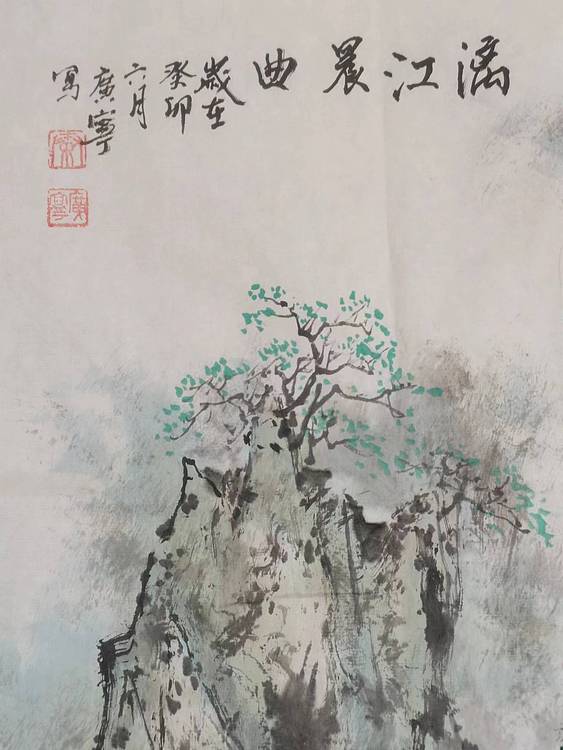 漓江晨曲
歲在
癸卯
六月
廣寧
寫
廣寧